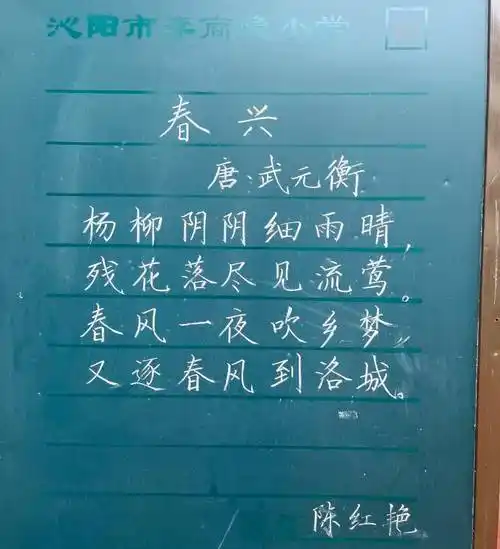 沁阳市李商隐小学
春兴
唐:武元衡
杨柳阴阴细雨晴,
残花落尽见流莺。
春风一夜吹乡梦,
又逐春风到洛城。
陈红艳